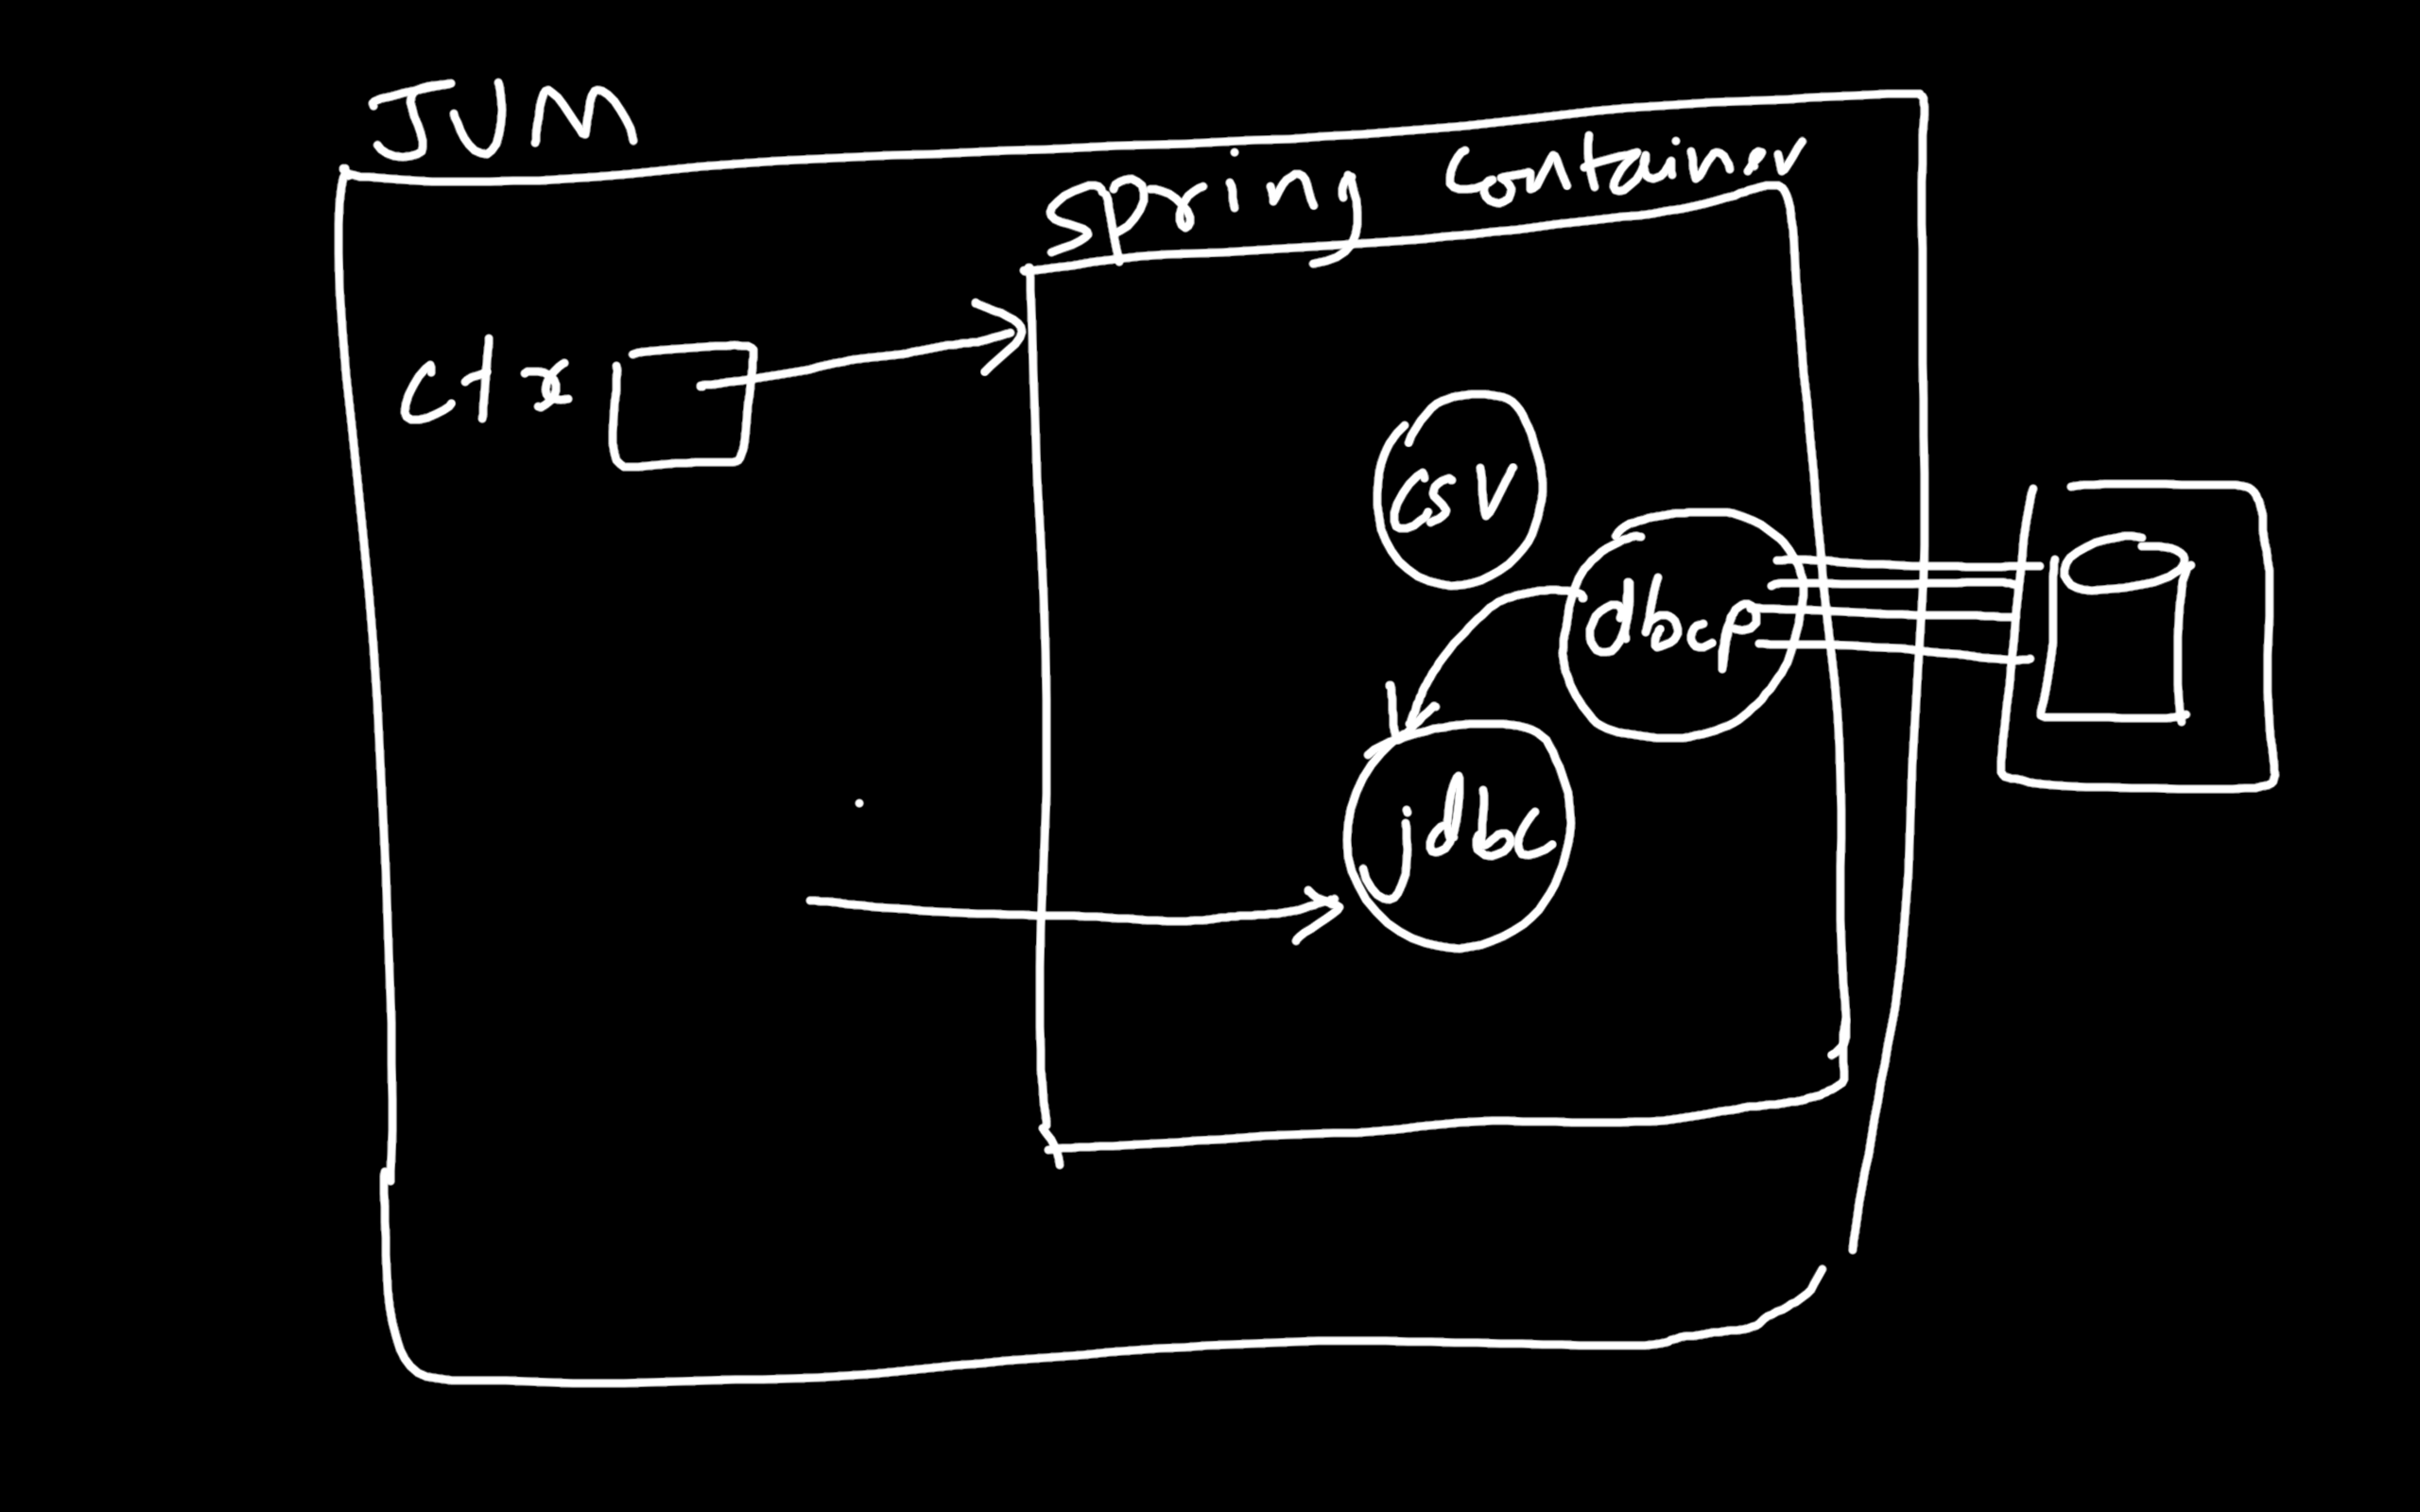 JVM
Spring Container
ctx
csv
dbcp
jdbc